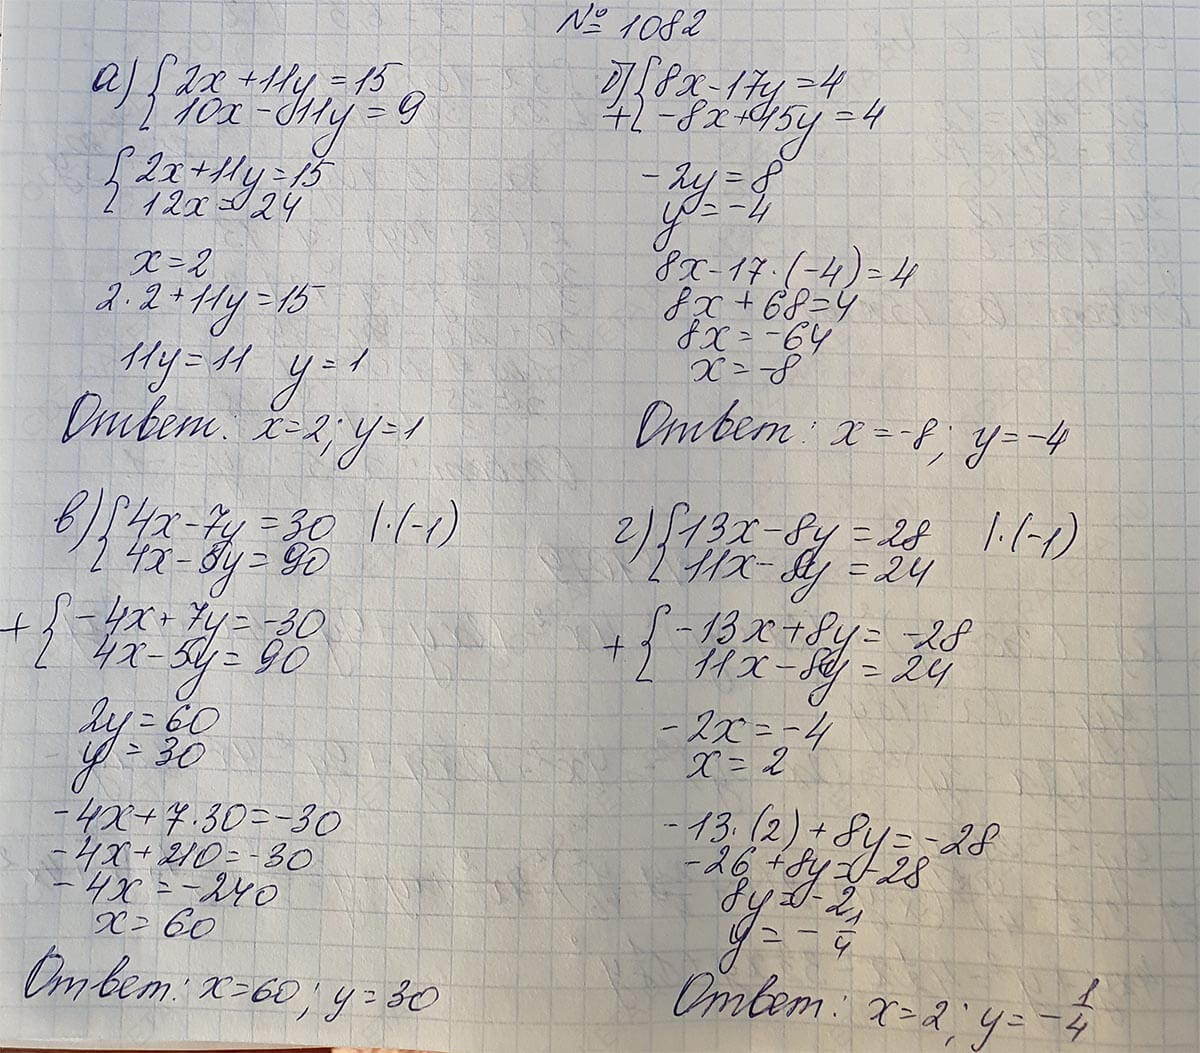 № 1082
а) { 2x + 11y = 15
10x - 11y = 9
{ 2x + 11y = 15
12x = 24
x = 2
2·2 + 11y = 15
11y = 11 y = 1
Ответ: x = 2; y = 1
б) { 8x - 17y = 4
+ { -8x + 15y = 4
-2y = 8
y = -4
8x - 17·(-4) = 4
8x + 68 = 4
8x = -64
x = -8
Ответ: x = -8; y = -4
в) { 4x - 7y = 30 |·(-1)
4x - 5y = 90
+ { -4x + 7y = -30
4x - 5y = 90
2y = 60
y = 30
-4x + 7·30 = -30
-4x + 210 = -30
-4x = -240
x = 60
Ответ: x = 60; y = 30
г) { 13x - 8y = 28 |·(-1)
11x - 8y = 24
+ { -13x + 8y = -28
11x - 8y = 24
-2x = -4
x = 2
-13·(2) + 8y = -28
-26 + 8y = -28
8y = -2
y = -1/4
Ответ: x = 2; y = -1/4